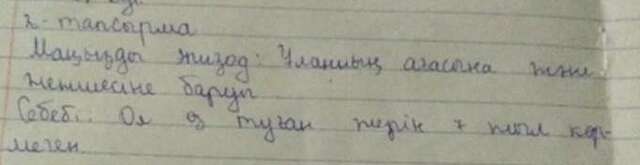 2-тапсырма
Маңызды эпизод: Ұланның ағасына және
женгесіне баруы
Себебі: Ол өз туған жерін 7 жыл көр-
меген.